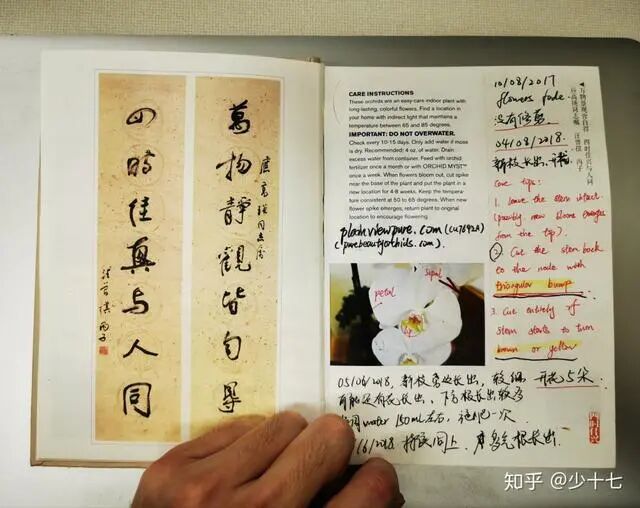 萬物靜觀皆自得
四時佳興与人同
CARE INSTRUCTIONS
These orchids are an easy-care indoor plant with
long-lasting, colorful flowers. Find a location in
your home with indirect light that maintains a
temperature between 65 and 85 degrees.
IMPORTANT: DO NOT OVERWATER.
Check every 10-15 days. Only add water if moss
is dry. Recommended: 4 oz. of water. Drain
excess water from container. Feed with orchid
fertilizer once a month or with ORCHID MYST™
once a week. When flowers bloom out, cut spike
near the base of the plant and put the plant in a
new location for 4-8 weeks. Keep the temperature
consistent at 50 to 65 degrees. When new
flower spike emerges, return plant to original
location to encourage flowering.
plainviewpure.com (CU7692A)
(purebeautyorchids.com).
petal
sepal
lip
10/08/2017
flowers fade.
没有修剪.
04/08/2018.
新枝长出,
Care tips:
1. Leave the stem intact.
(possibly new blooms emerges
from the top).
2. Cut the stem back
to the node with
triangular bump.
3. Cut entirely if
stem starts to turn
brown or yellow.
05/06/2018, 新枝旁边长出, 较细 开花5朵
water 150ml左右, 一次.
/6/2018 持续同上, 根长出.
万物静观皆自得 四时佳兴与人同
同志嘱 汪曾祺 丙子
四时佳兴
知乎 @少十七